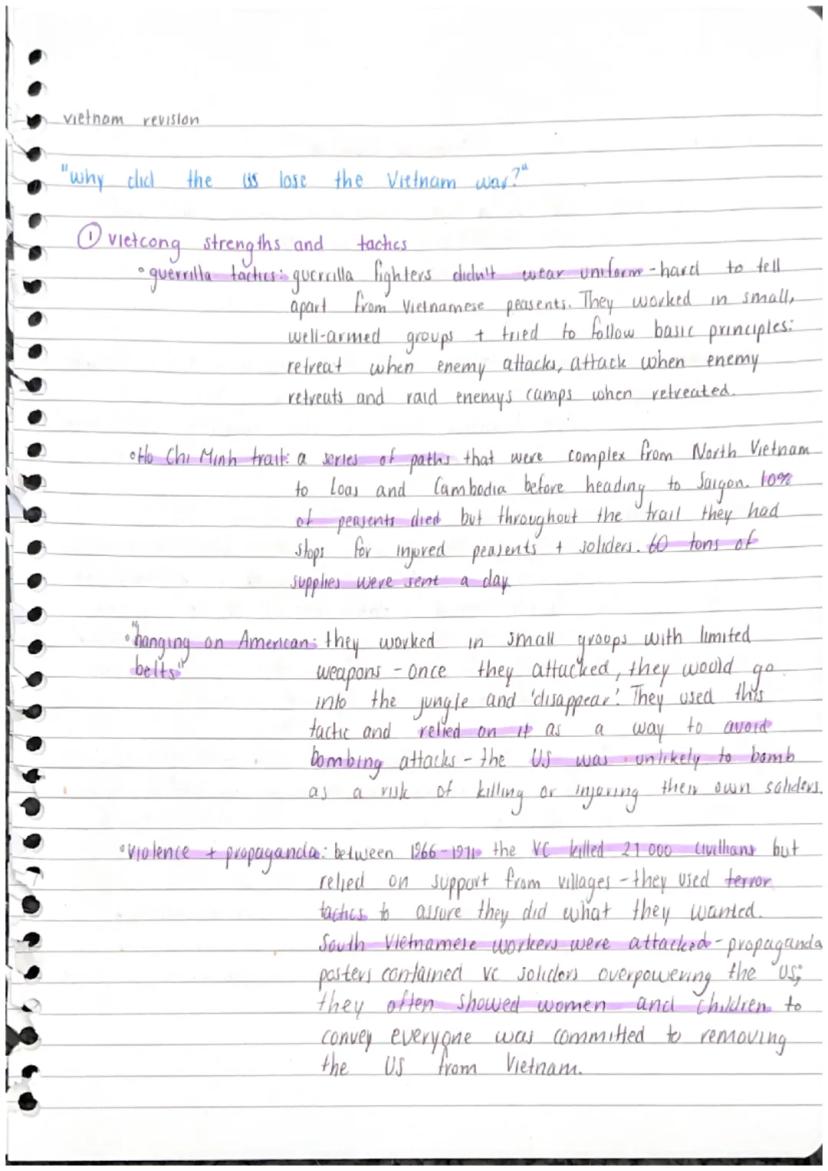 vietnam revision
"why did the US lose the Vietnam war?"
① vietcong strengths and tactics
°guerrilla tactics: guerrilla fighters didn't wear uniform - hard to tell
apart from Vietnamese peasents. They worked in small,
well-armed groups + tried to follow basic principles:
retreat when enemy attacks, attack when enemy
retreats and raid enemys camps when retreated.
°Ho Chi Minh trail: a series of paths that were complex from North Vietnam
to Loas and Cambodia before heading to Saigon. 10%
of peasents died but throughout the trail they had
stops for injored peasents + soliders. 60 tons of
supplies were sent a day
°"hanging on American: they worked in small groops with limited
belts" weapons - once they attacked, they would go
into the jungle and 'disappear'. They used this
tactic and relied on it as a way to avoid
bombing attacks - the US was unlikely to bomb
as a risk of killing or injuring their own soliders.
°violence + propaganda: between 1966-1971 the VC killed 27 000 civilians but
relied on support from villages - they used terror
tactics to assure they did what they wanted.
South Vietnamese workers were attacked - propaganda
posters contained VC soliders overpowering the US;
they often showed women and children to
convey everyone was committed to removing
the US from Vietnam.